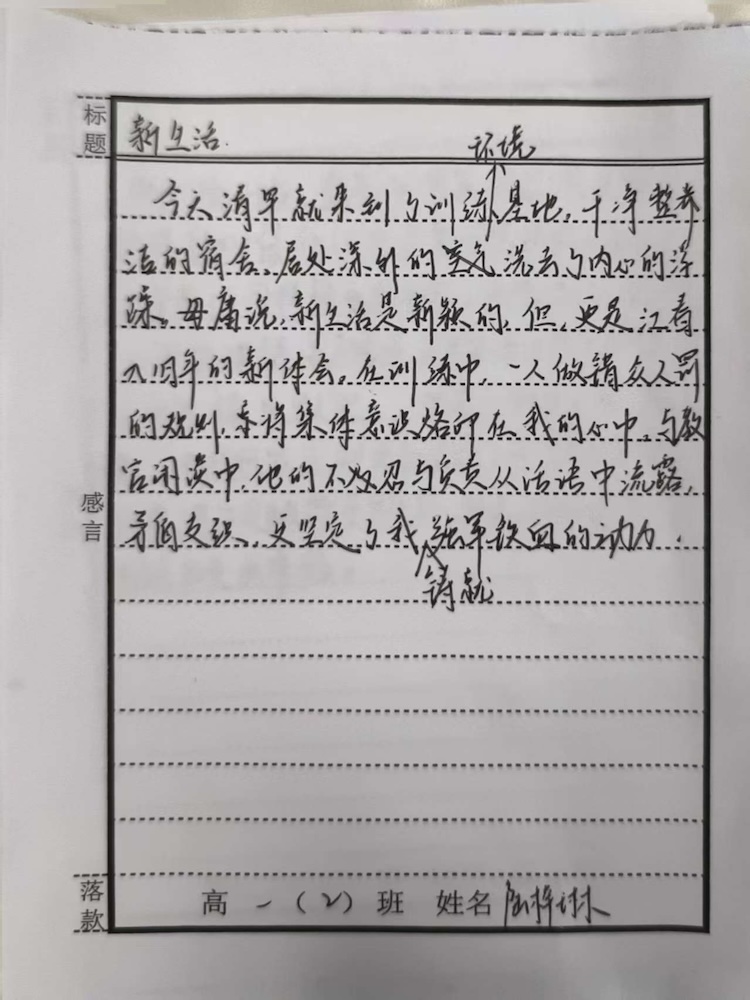 标题
新生活.
环境
今天清早就来到了训练基地,干净整齐
洁的宿舍,居处深外的空气洗去了内心的浮
躁。毋庸说,新生活是新颖的,但,更是江春
入旧年的新体会。在训练中,一人做错众人罚
的规则,亦将集体意识烙印在我的心中,与教
官闲谈中,他的不以与负责从活语中流露,
矛盾交织,更坚定了我强军铁血的动力.
铸就
感言
落款
高一(2)班 姓名